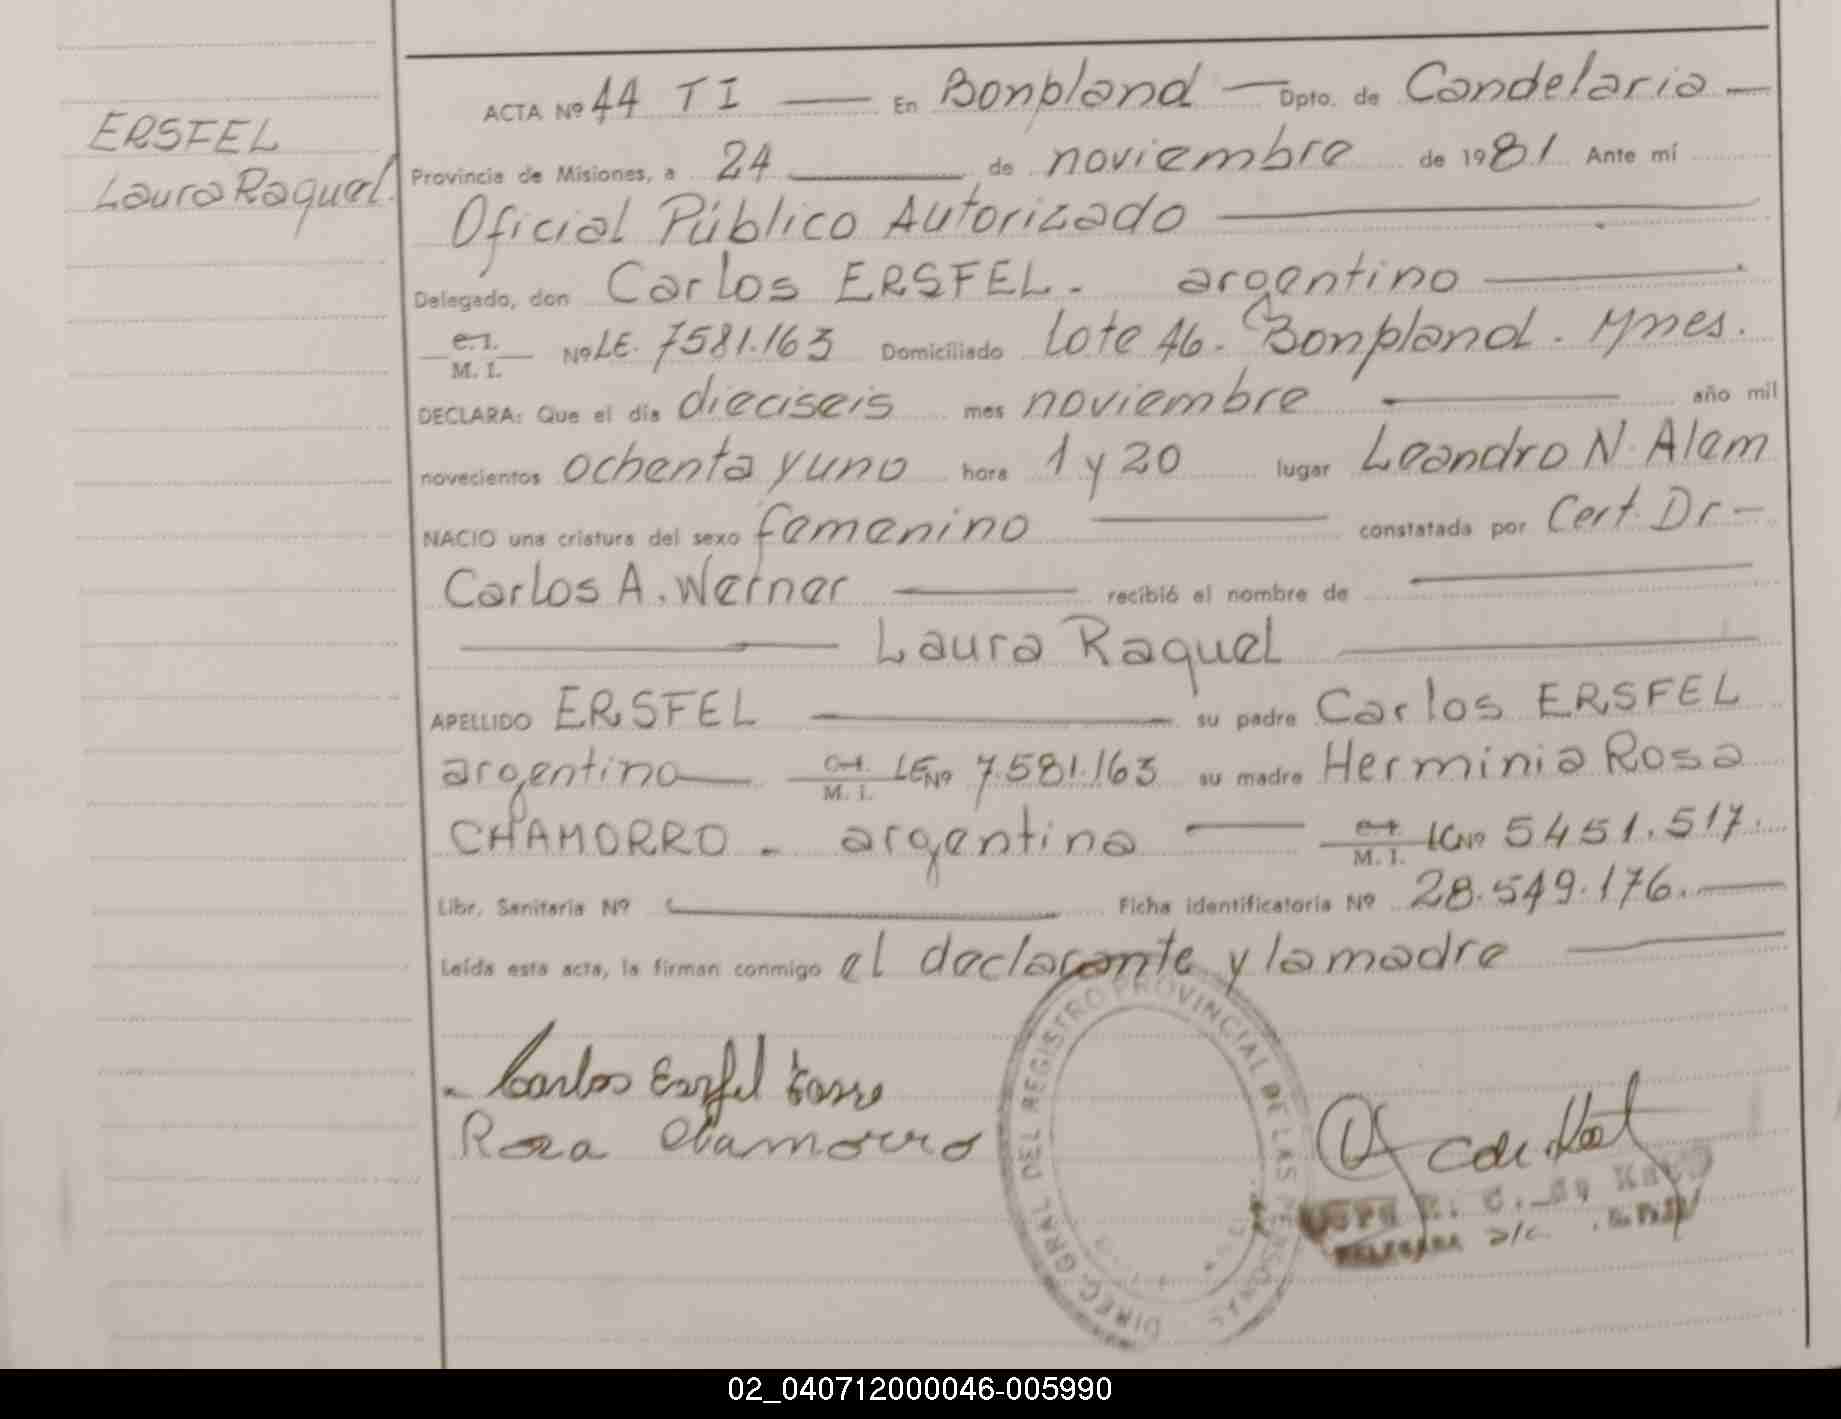 ERSFEL
Laura Raquel.
ACTA Nº 44 TI — En Bonpland — Dpto. de Candelaria —
Provincia de Misiones, a 24 — de noviembre de 1981 Ante mí
Oficial Público Autorizado —
Delegado, don Carlos ERSFEL. argentino —
C.I. M. I. Nº LE. 7581.163 Domiciliado Lote 46. Bonpland. Mnes.
DECLARA: Que el día dieciseis mes noviembre — año mil
novecientos ochenta y uno hora 1 y 20 lugar Leandro N. Alem
NACIO una criatura del sexo femenino — constatada por Cert. Dr —
Carlos A. Werner — recibió el nombre de —
— Laura Raquel —
APELLIDO ERSFEL — su padre Carlos ERSFEL
argentino — C.I. M. I. LE Nº 7.581.163 su madre Herminia Rosa
CHAMORRO - argentina — C.I. M. I. IC Nº 5451.517.
Libr. Sanitaria Nº — Ficha identificatoria Nº 28.549.176. —
Leída esta acta, la firman conmigo el declarante y la madre —
Carlos Ersfel
Rosa Chamorro
DIREC. GRAL DEL REGISTRO PROVINCIAL DE LAS PERSONAS
DELEGADA a/c.
02_040712000046-005990